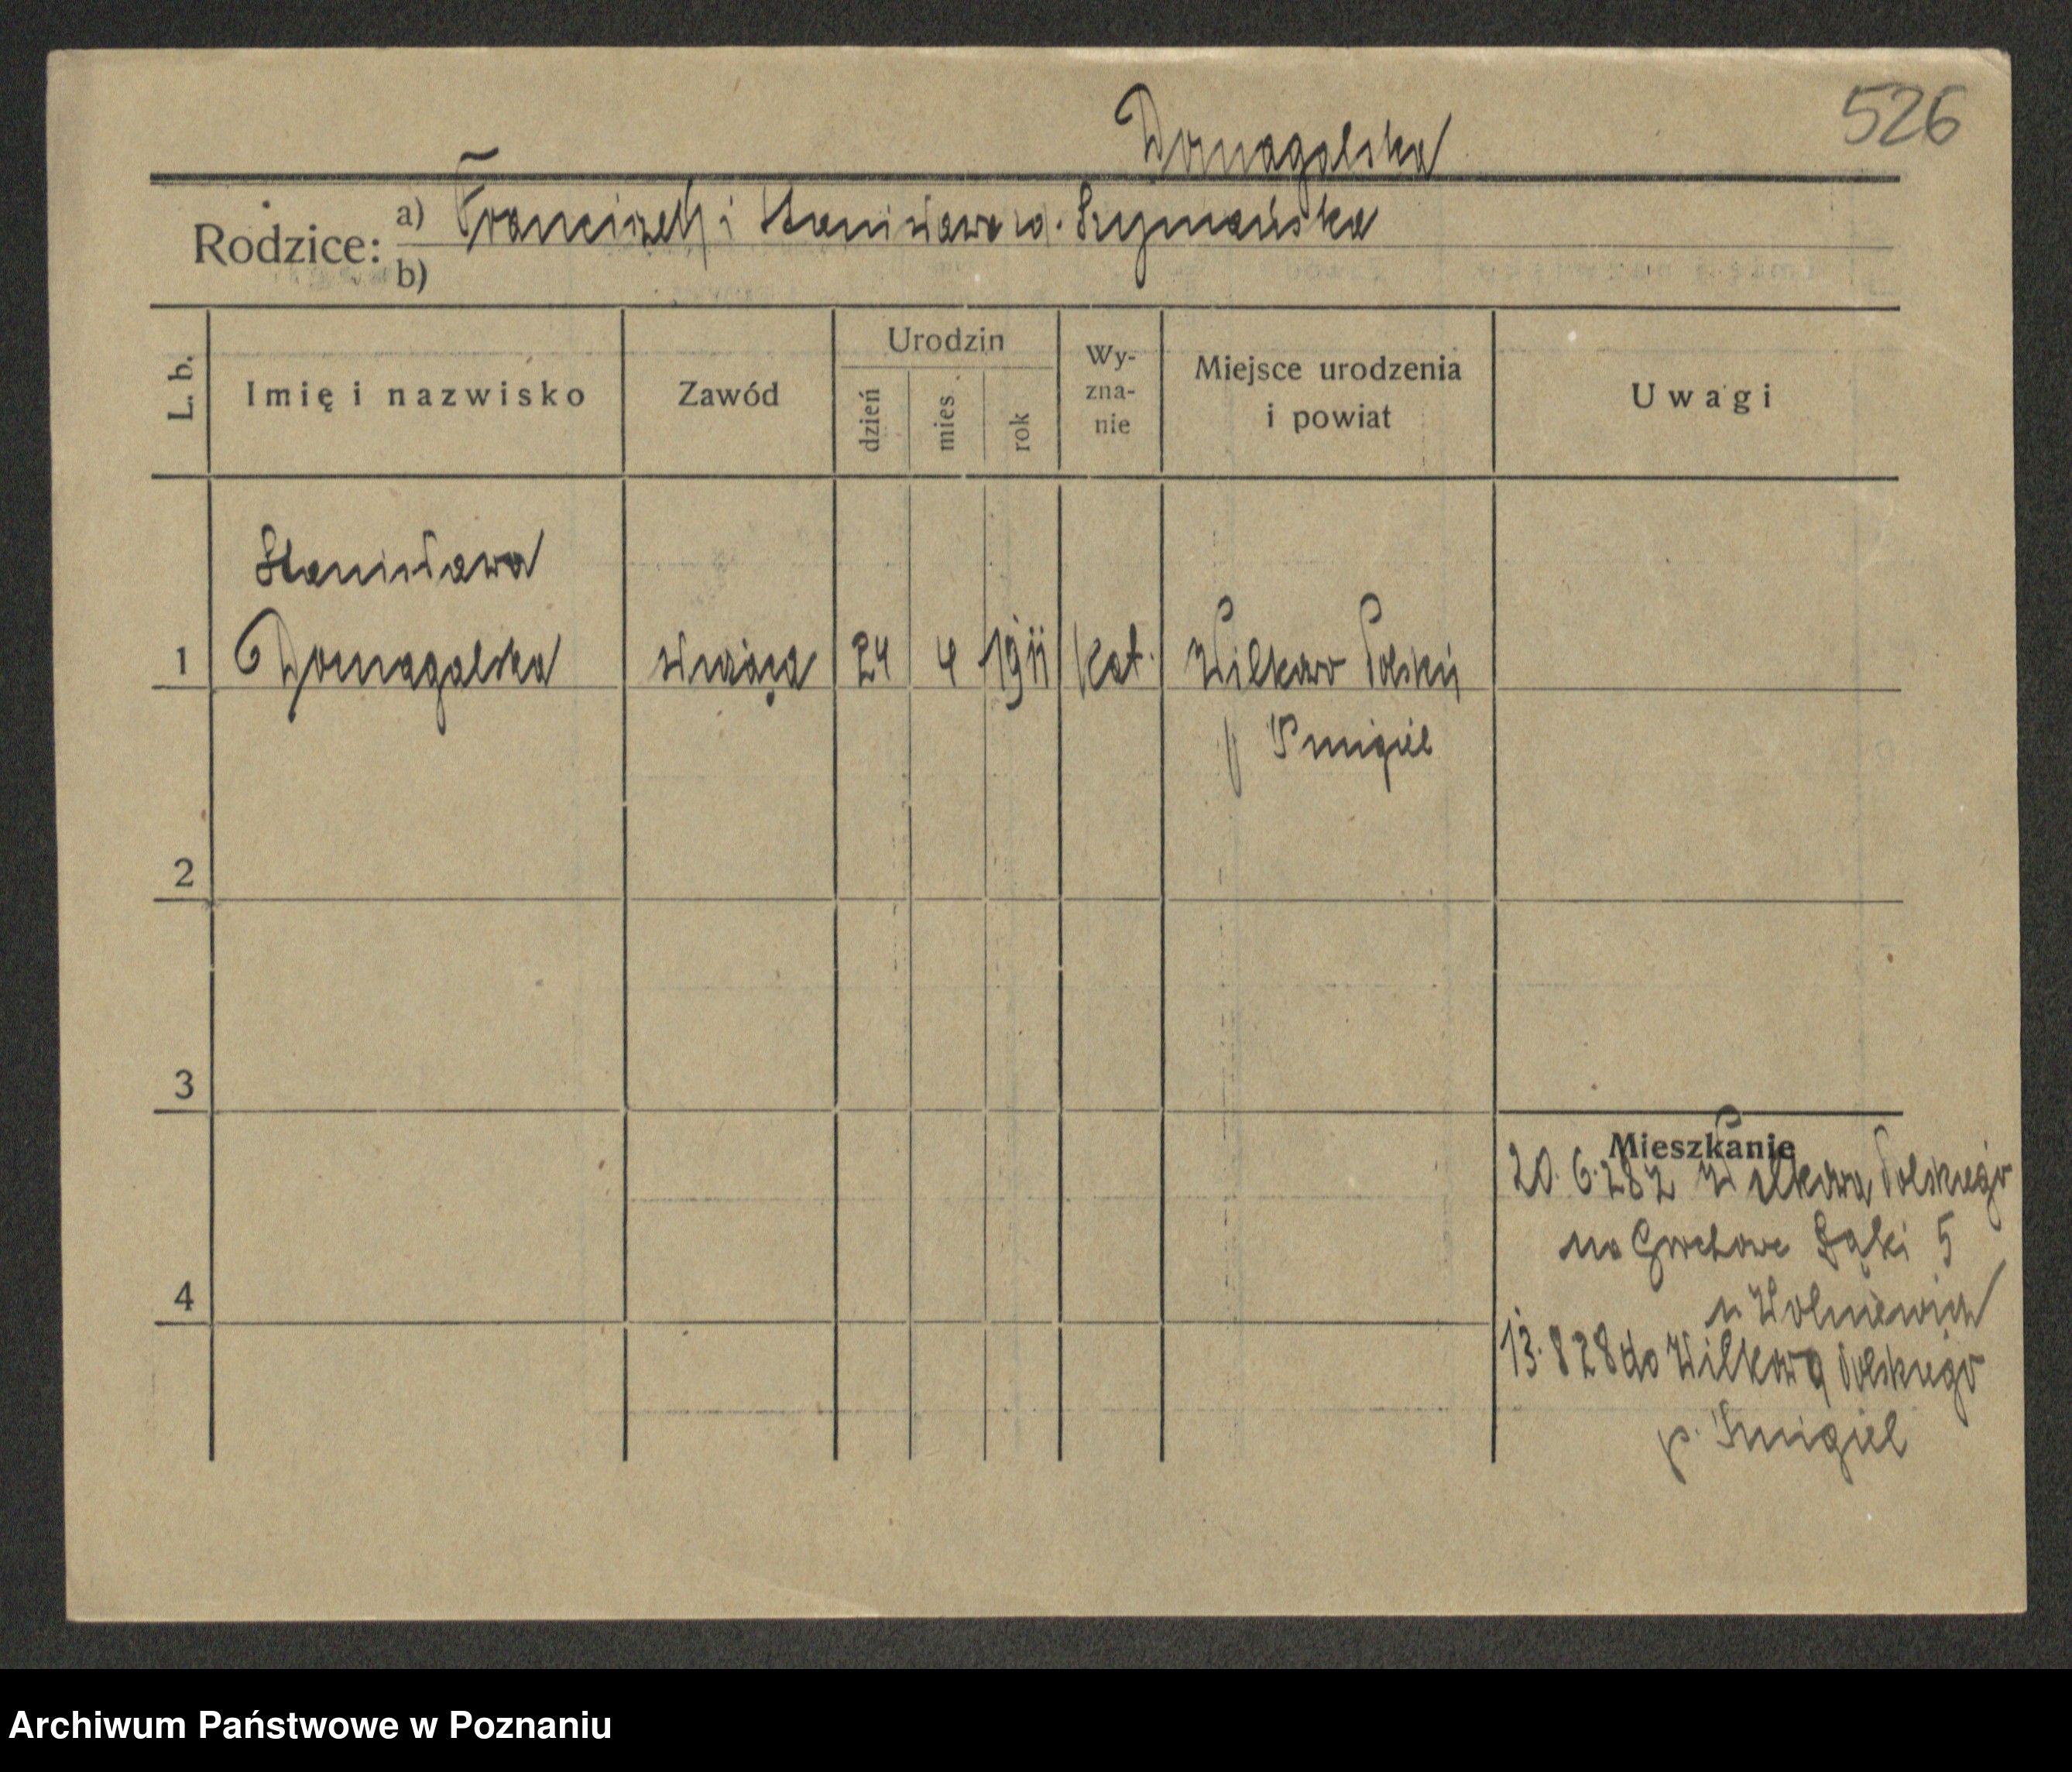 526
Domagalska
Rodzice: a) Franciszek i Stanisława ur. Szymańska
b)
L. b.
Imię i nazwisko
Zawód
Urodzin
dzień
mies.
rok
Wy-
zna-
nie
Miejsce urodzenia
i powiat
Uwagi
Stanisława
1 Domagalska służąca 24 4 1911 kat. Wilkowo Polskie
p Śmigiel
2
3
4
Mieszkanie
20.6.28 z Wilkowa Polskiego
na Łąki 5
u
13.8 28 do Wilkowa Polskiego
p. Śmigiel
Archiwum Państwowe w Poznaniu